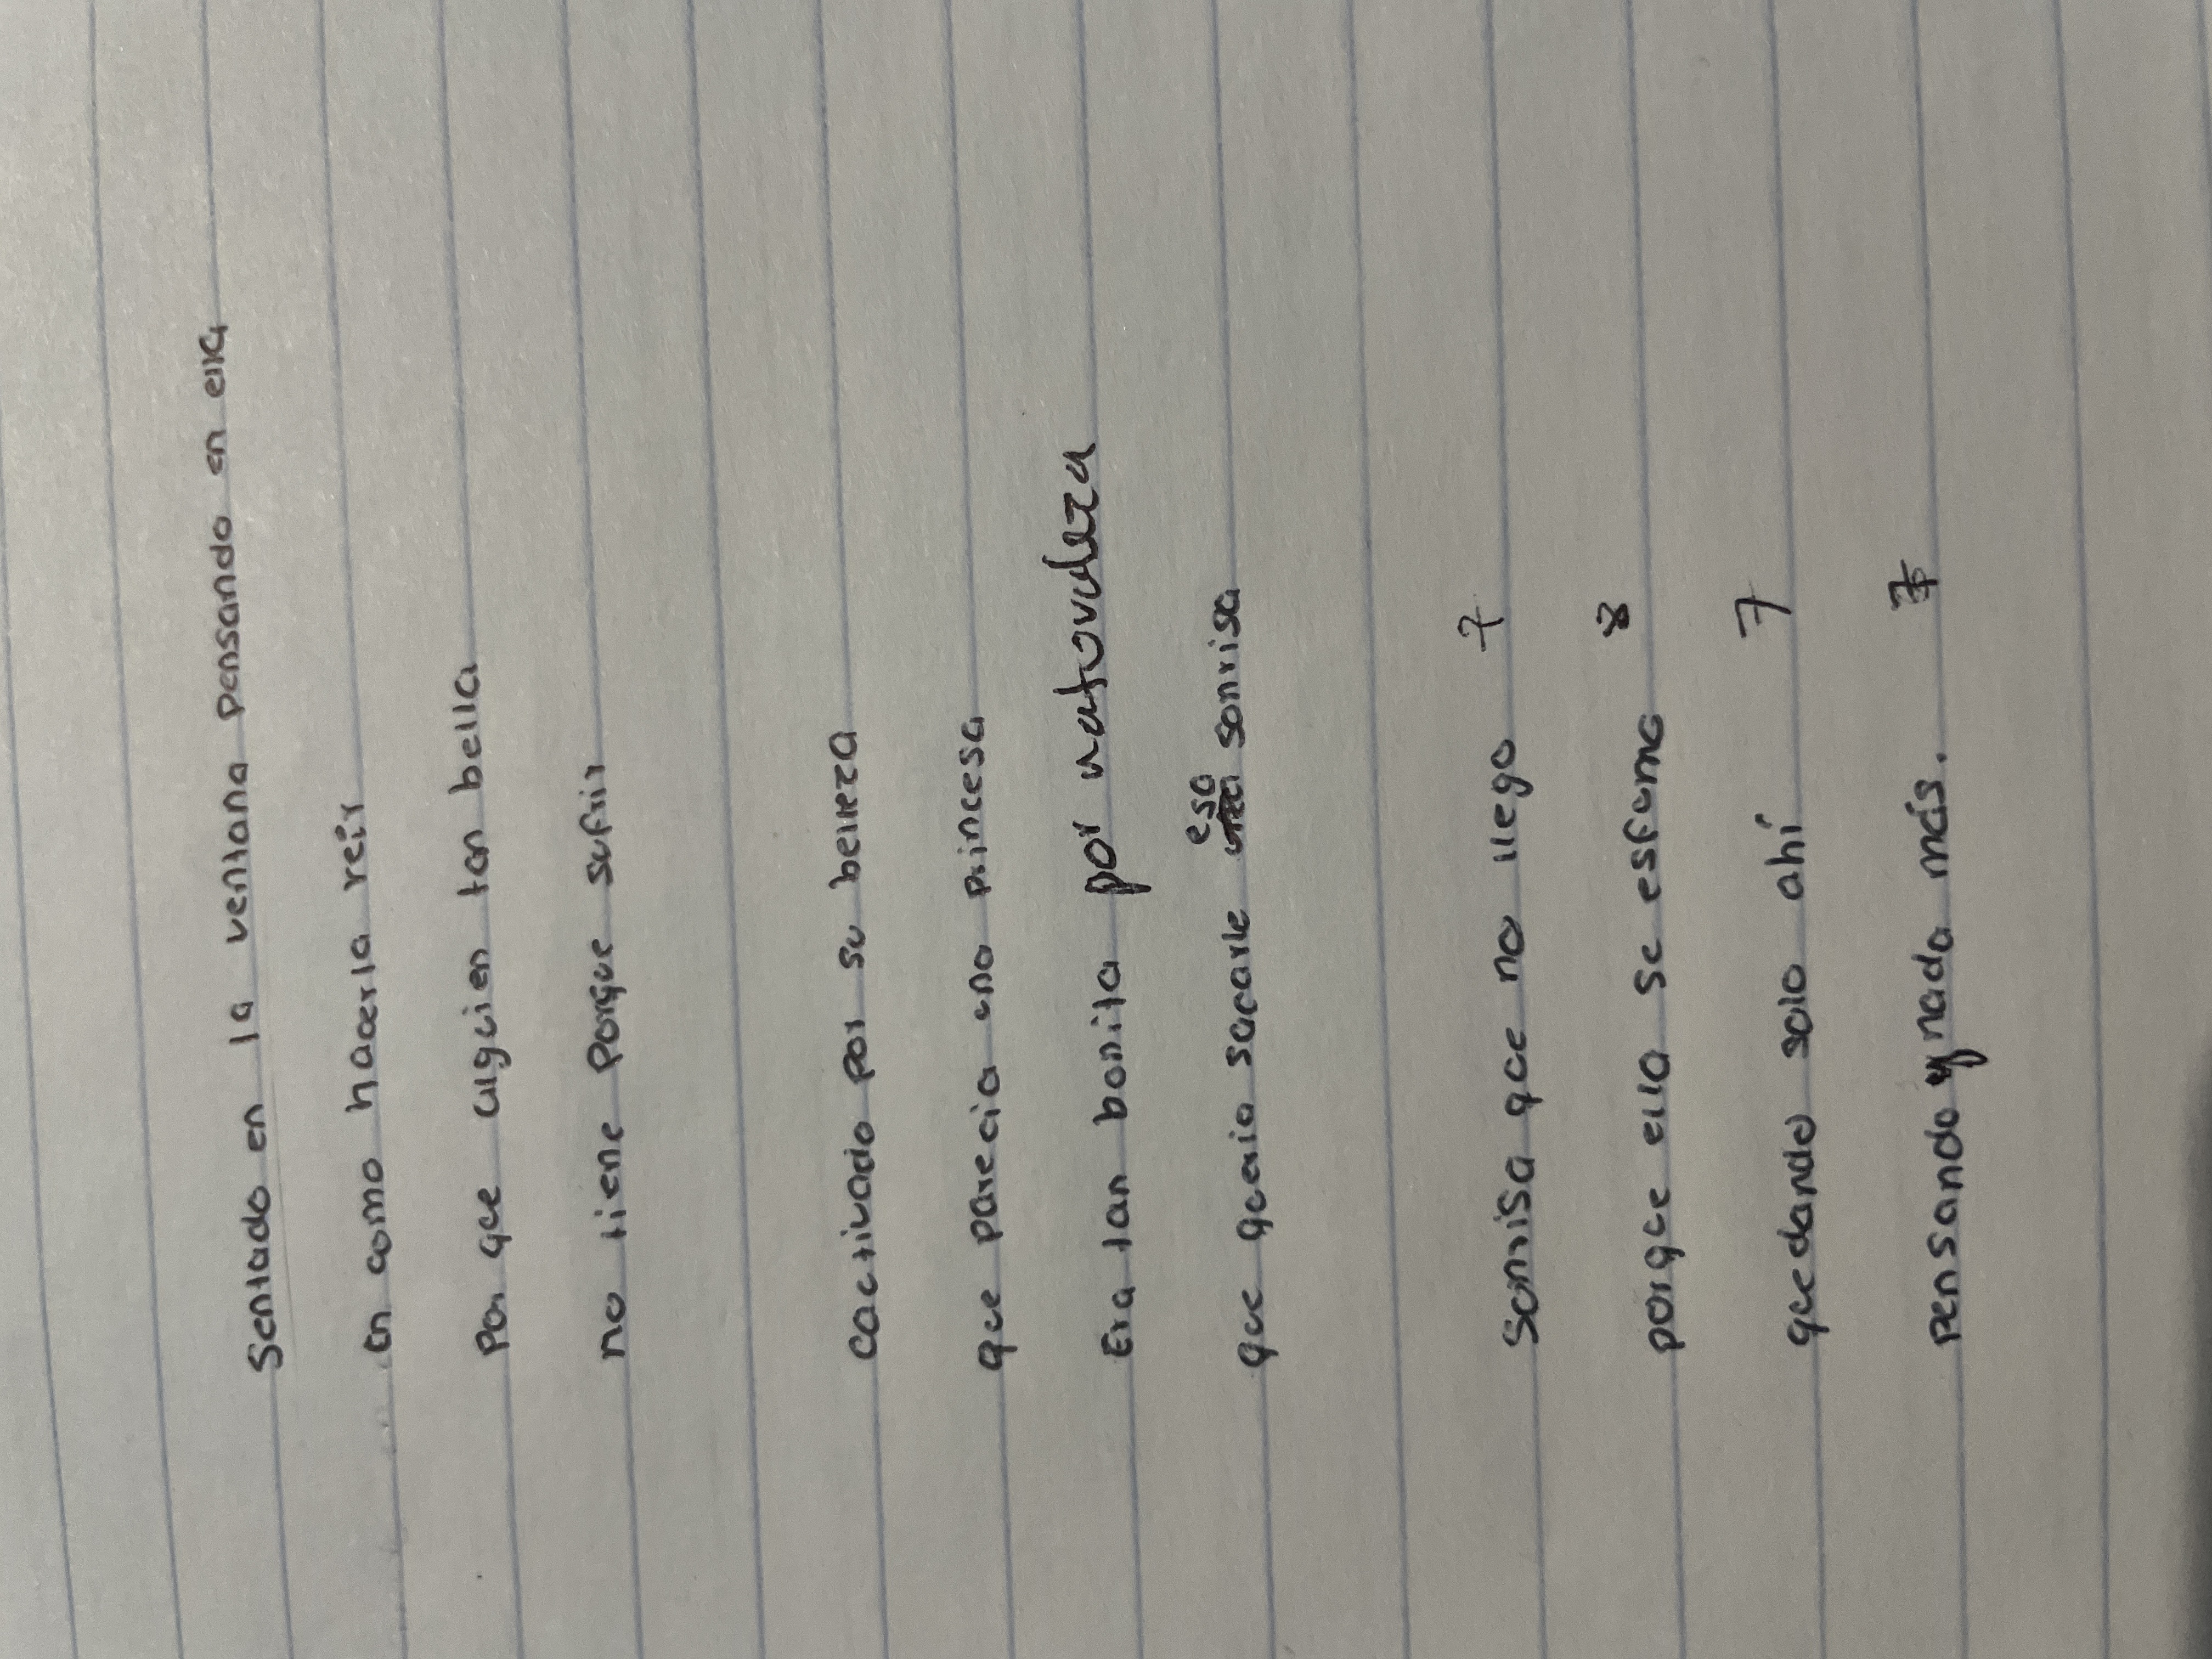 Sentado en la ventana pensando en ella
en como hacerla reír
Por que alguien tan bella
no tiene porque sufrir
cautivado por su belleza
que parecia una princesa
Era tan bonita por naturaleza
que queria sacarle esa sonrisa
Sonrisa que no llego 7
porque ella se esfumo 8
quedando solo ahí 7
pensando y nada más. 7